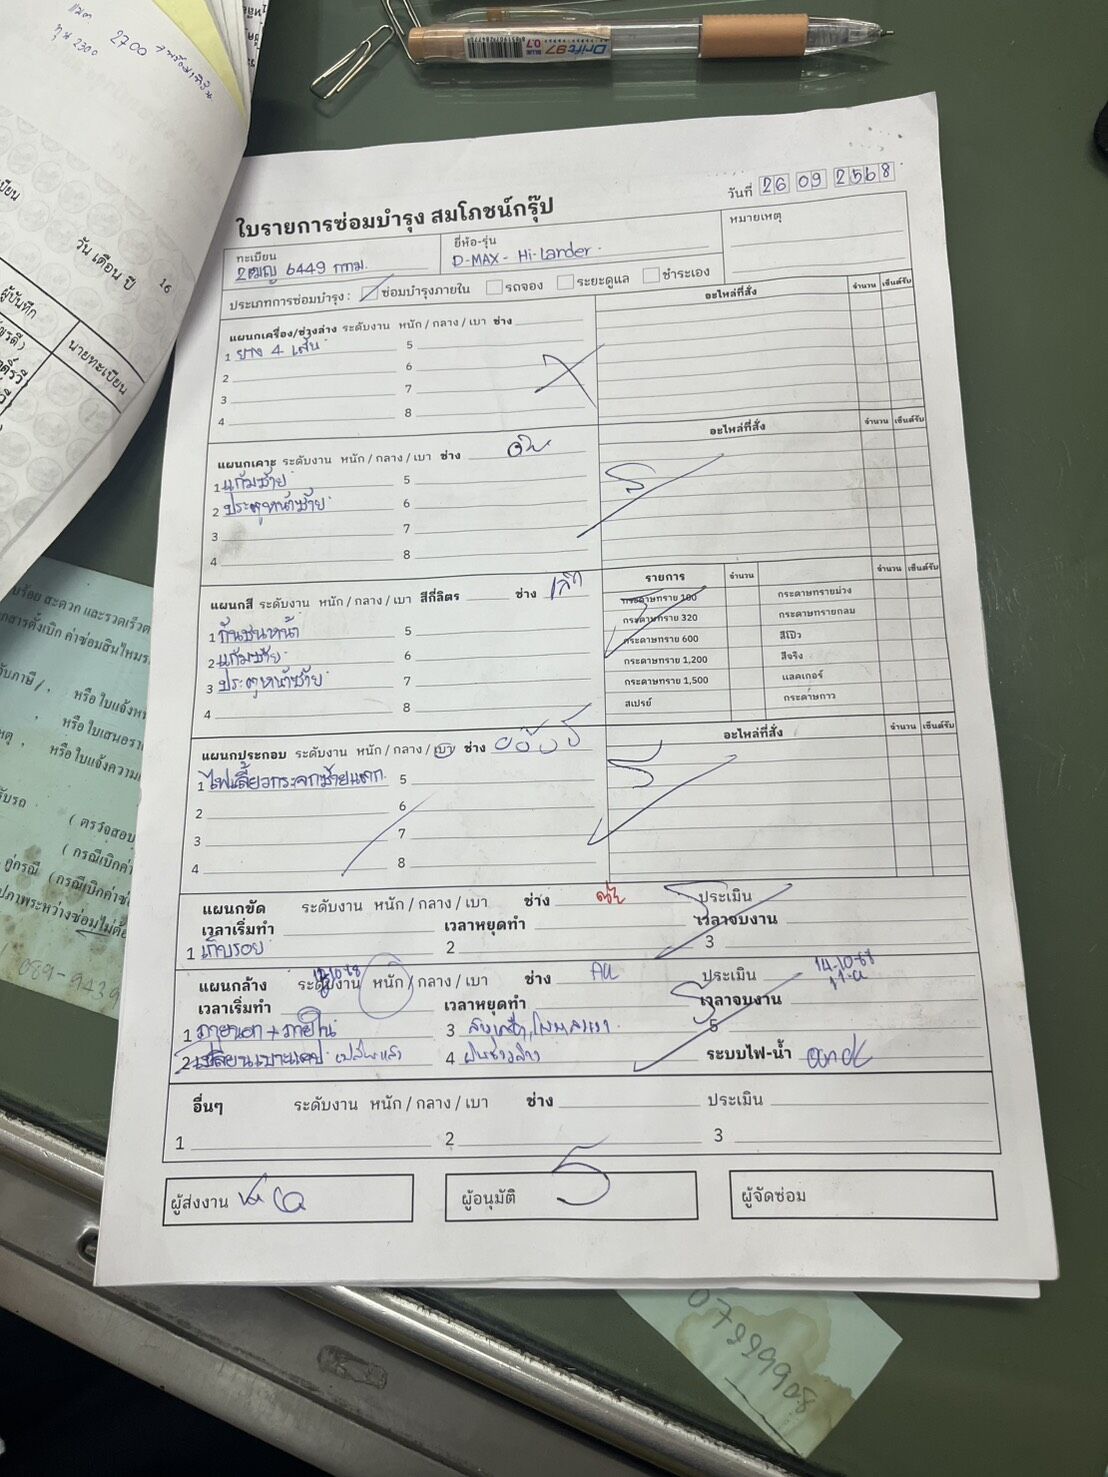 2700
ทุน 2300
Drift 97
BLUE
0.7
วัน เดือน ปี
16
ผู้บันทึก
นายทะเบียน
วันที่ 26 09 2568
ใบรายการซ่อมบำรุง สมโภชน์กรุ๊ป
ทะเบียน
6449 กทม.
ยี่ห้อ-รุ่น
D-MAX - Hi-Lander
หมายเหตุ
ประเภทการซ่อมบำรุง : ซ่อมบำรุงภายใน รถจอง ระยะดูแล ชำระเอง
อะไหล่ที่สั่ง จำนวน เซ็นต์รับ
แผนกเครื่อง/ช่วงล่าง ระดับงาน หนัก / กลาง / เบา ช่าง
1 ยาง 4 เส้น 5
2 6
3 7
4 8
อะไหล่ที่สั่ง จำนวน เซ็นต์รับ
แผนกเคาะ ระดับงาน หนัก / กลาง / เบา ช่าง
1 แก้มซ้าย 5
2 ประตูหน้าซ้าย 6
3 7
4 8
รายการ จำนวน จำนวน เซ็นต์รับ
แผนกสี ระดับงาน หนัก / กลาง / เบา สีกี่ลิตร ช่าง เล็ก
1 กันชนหน้า 5
2 แก้มซ้าย 6
3 ประตูหน้าซ้าย 7
4 8
กระดาษทราย 180 กระดาษทรายม่วง
กระดาษทราย 320 กระดาษทรายกลม
กระดาษทราย 600 สีโป๊ว
กระดาษทราย 1,200 สีจริง
กระดาษทราย 1,500 แลคเกอร์
สเปรย์ กระดาษกาว
อะไหล่ที่สั่ง จำนวน เซ็นต์รับ
แผนกประกอบ ระดับงาน หนัก / กลาง / เบา ช่าง
1 ไฟเลี้ยวกระจกซ้ายแตก 5
2 6
3 7
4 8
แผนกขัด ระดับงาน หนัก / กลาง / เบา ช่าง ประเมิน
เวลาเริ่มทำ เวลาหยุดทำ เวลาจบงาน
1 เก็บรอย 2 3
แผนกล้าง ระดับงาน หนัก / กลาง / เบา ช่าง ประเมิน 14-10-68
เวลาเริ่มทำ เวลาหยุดทำ เวลาจบงาน
1 ภายนอก + ภายใน 3 5
2 เปลี่ยนเบาะแคป เปลี่ยนแล้ว 4 พ่นช่วงล่าง ระบบไฟ-น้ำ
อื่นๆ ระดับงาน หนัก / กลาง / เบา ช่าง ประเมิน
1 2 3
ผู้ส่งงาน
ผู้อนุมัติ
ผู้จัดซ่อม
089-9439